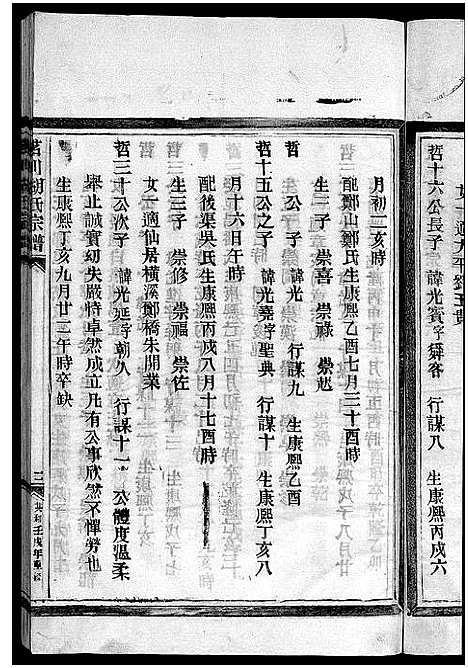 女一適太平
哲十六公長子 諱光賓字舜客 行謀八 生康熙丙戌六
月初二亥時
配鄭山鄭氏生康熙乙酉七月三十酉時
生三子 崇喜 崇祿
哲 行謀九 生康熙乙酉
哲十五公之子 諱光堯字聖典 行謀十 生康熙丁亥八
月十六日午時
配後渠吳氏生康熙丙戌八月十七酉時
生三子 崇修 崇福 崇佐
女一適仙居橫溪鄭橋朱開業
哲三十公次子 諱光延字朝久 行謀十一 公體度溫柔
舉止誠實幼失嚴特卓然成立凡有公事欣然不憚勞也
生康熙丁亥九月廿三午時卒缺
茗川胡氏宗譜
三 共和壬戌年重